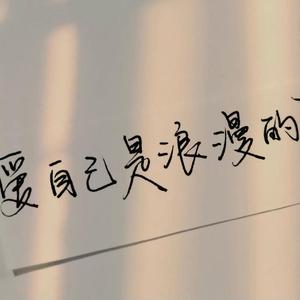 爱自己是浪漫的